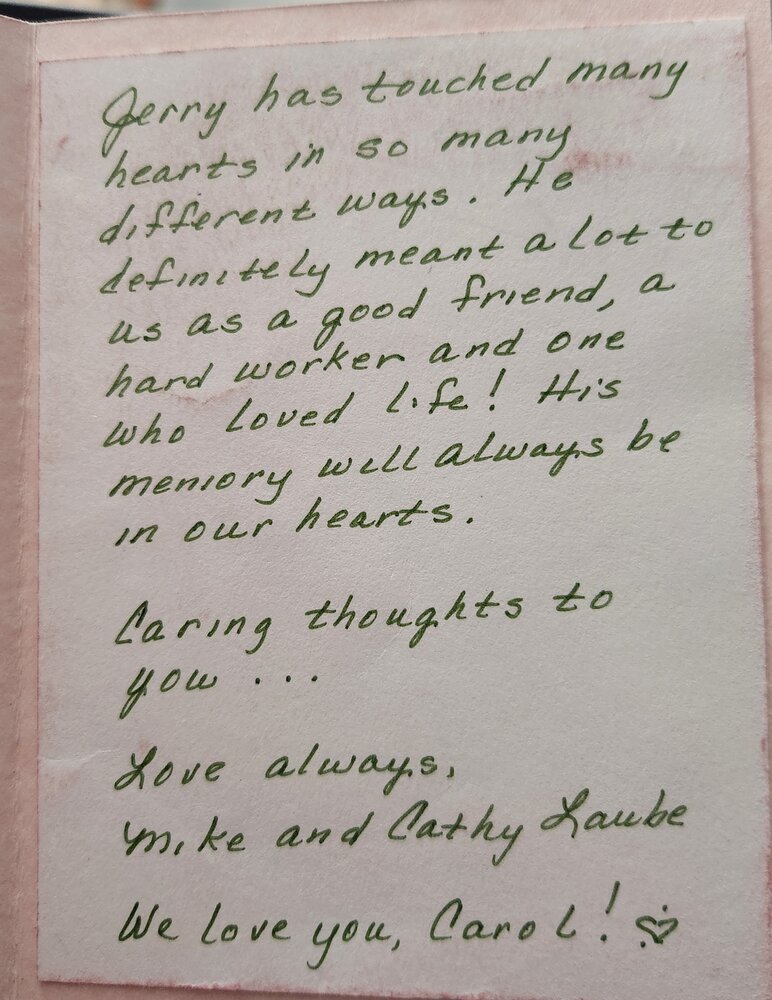 Jerry has touched many
hearts in so many
different ways. He
definitely meant a lot to
us as a good friend, a
hard worker and one
who loved life! His
memory will always be
in our hearts.
Caring thoughts to
you ...
Love always,
Mike and Cathy Laube
We love you, Carol!